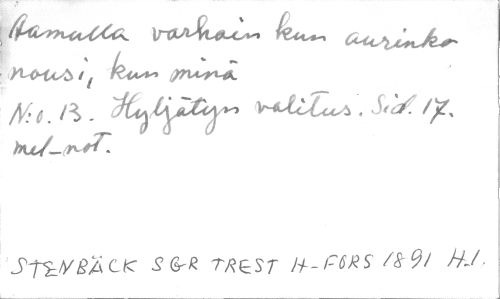 Aamulla varhain kun aurinko
nousi, kun minä
N:o. 13. Hyljätyn valitus. Sid. 17.
mel-not.
STENBÄCK SGR TREST H-FORS 1891 H.1.